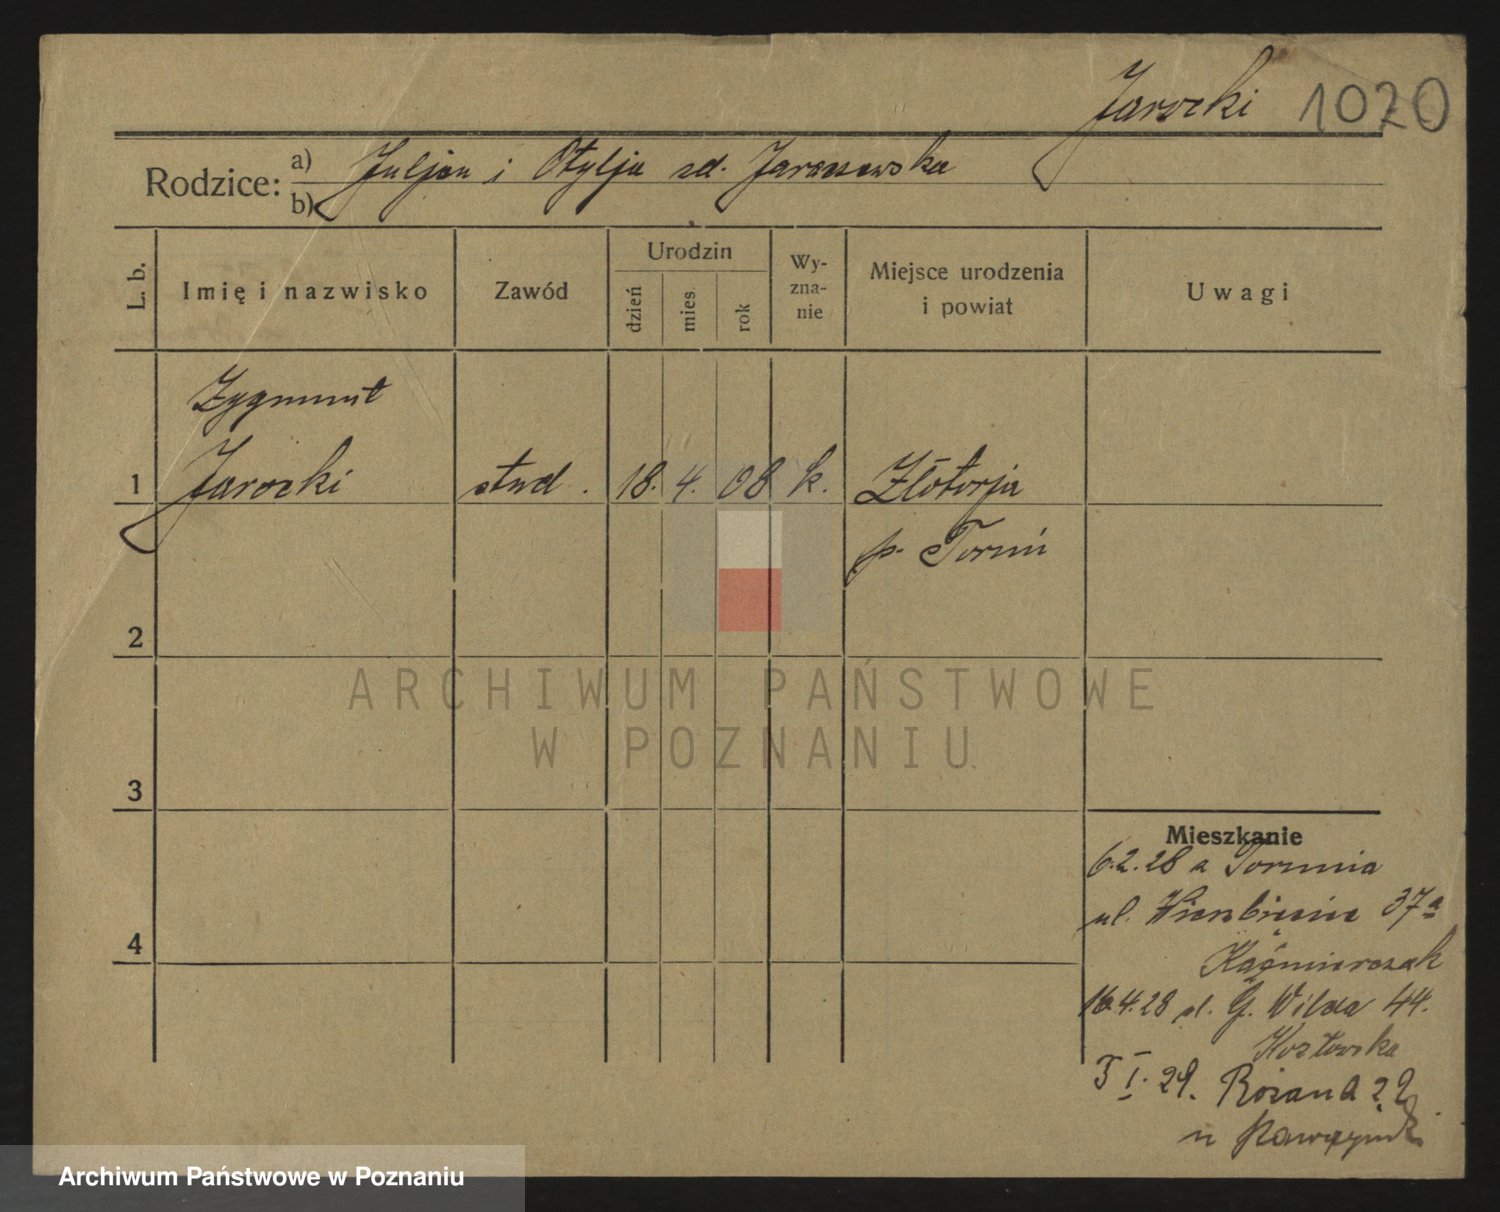 Jarocki 1020
Rodzice: a) Juljan i Otylja zd. Jaroszewska
b)
L. b. Imię i nazwisko Zawód Urodzin dzień mies. rok Wyzna-nie Miejsce urodzenia i powiat Uwagi
Zygmunt
1 Jarocki stud. 18. 4. 08 k. Złotorja
p. Toruń
2
ARCHIWUM PAŃSTWOWE
W POZNANIU
3
Mieszkanie
6.2.28 z Torunia
ul. Wierzbięcice 37a
4
Kaźmierczak
16.4.28 ul. G. Wilda 44.
Kozłowska
I. 29. Różana 22
u
Archiwum Państwowe w Poznaniu